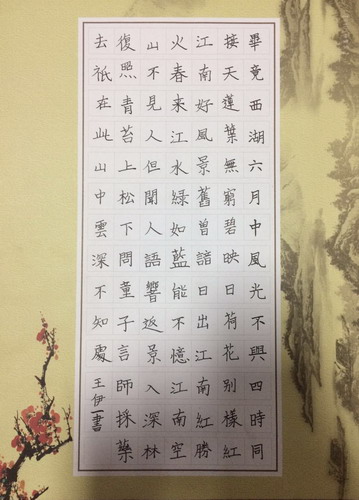 畢竟西湖六月中風光不與四時同
接天蓮葉無窮碧映日荷花别樣紅
江南好風景舊曾諳日出江南紅勝
火春来江水綠如藍能不憶江南空
山不見人但聞人語響返景入深林
復照青苔上松下問童子言師採藥
去祇在此山中雲深不知處王伊一書